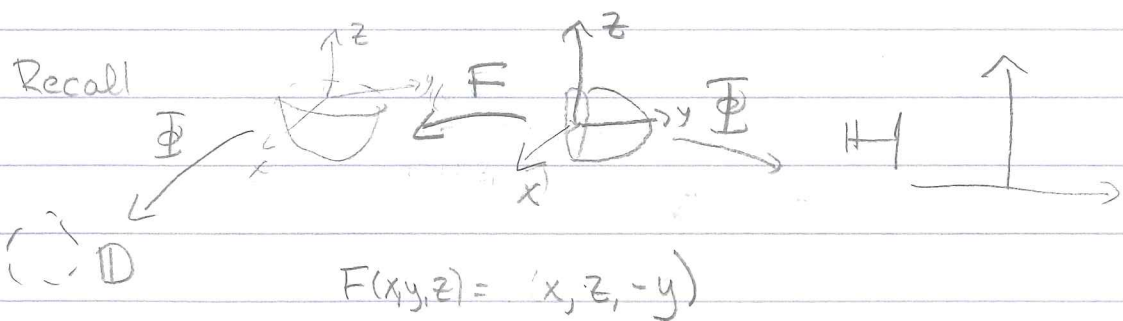 Recall
z
y
x
Φ
F
z
y
x
Φ
ℍ
𝔻
F(x,y,z) = (x, z, -y)